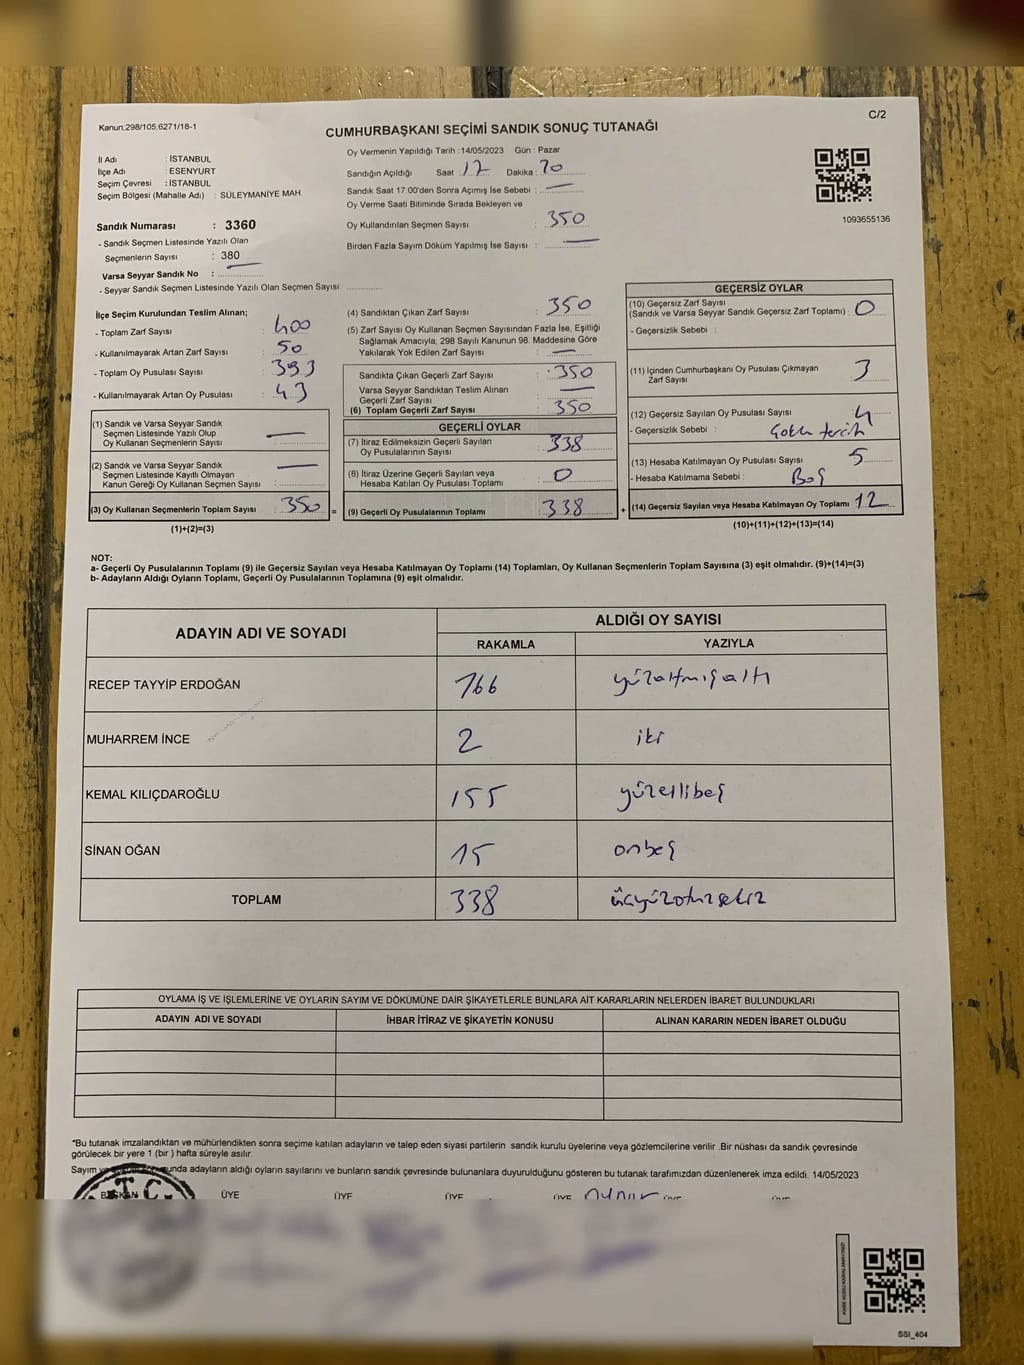 Kanun:298/105,6271/18-1
C/2
CUMHURBAŞKANI SEÇİMİ SANDIK SONUÇ TUTANAĞI
İl Adı : İSTANBUL
İlçe Adı : ESENYURT
Seçim Çevresi : İSTANBUL
Seçim Bölgesi (Mahalle Adı) : SÜLEYMANİYE MAH.
Sandık Numarası : 3360
- Sandık Seçmen Listesinde Yazılı Olan
Seçmenlerin Sayısı : 380
Varsa Seyyar Sandık No :
- Seyyar Sandık Seçmen Listesinde Yazılı Olan Seçmen Sayısı:
Oy Vermenin Yapıldığı Tarih :14/05/2023 Gün : Pazar
Sandığın Açıldığı Saat : 17 Dakika : 20
Sandık Saat 17:00'den Sonra Açımış İse Sebebi : —
Oy Verme Saati Bitiminde Sırada Bekleyen ve
Oy Kullandırılan Seçmen Sayısı : 350
Birden Fazla Sayım Döküm Yapılmış İse Sayısı : —
1093655136
İlçe Seçim Kurulundan Teslim Alınan;
- Toplam Zarf Sayısı : 400
- Kullanılmayarak Artan Zarf Sayısı : 50
- Toplam Oy Pusulası Sayısı : 393
- Kullanılmayarak Artan Oy Pusulası : 43
(1) Sandık ve Varsa Seyyar Sandık
Seçmen Listesinde Yazılı Olup
Oy Kullanan Seçmenlerin Sayısı : —
(2) Sandık ve Varsa Seyyar Sandık
Seçmen Listesinde Kayıtlı Olmayan
Kanun Gereği Oy Kullanan Seçmen Sayısı : —
(3) Oy Kullanan Seçmenlerin Toplam Sayısı : 350
(1)+(2)=(3)
=
(4) Sandıktan Çıkan Zarf Sayısı : 350
(5) Zarf Sayısı Oy Kullanan Seçmen Sayısından Fazla İse, Eşitliği
Sağlamak Amacıyla, 298 Sayılı Kanunun 98. Maddesine Göre
Yakılarak Yok Edilen Zarf Sayısı : —
Sandıkta Çıkan Geçerli Zarf Sayısı : 350
Varsa Seyyar Sandıktan Teslim Alınan
Geçerli Zarf Sayısı : —
(6) Toplam Geçerli Zarf Sayısı : 350
GEÇERLİ OYLAR
(7) İtiraz Edilmeksizin Geçerli Sayılan
Oy Pusulalarının Sayısı : 338
(8) İtiraz Üzerine Geçerli Sayılan veya
Hesaba Katılan Oy Pusulası Toplamı : 0
(9) Geçerli Oy Pusulalarının Toplamı : 338
+
GEÇERSİZ OYLAR
(10) Geçersiz Zarf Sayısı
(Sandık ve Varsa Seyyar Sandık Geçersiz Zarf Toplamı) : 0
- Geçersizlik Sebebi :
(11) İçinden Cumhurbaşkanı Oy Pusulası Çıkmayan
Zarf Sayısı : 3
(12) Geçersiz Sayılan Oy Pusulası Sayısı : 4
- Geçersizlik Sebebi : tercih
(13) Hesaba Katılmayan Oy Pusulası Sayısı : 5
- Hesaba Katılmama Sebebi : Boş
(14) Geçersiz Sayılan veya Hesaba Katılmayan Oy Toplamı : 12
(10)+(11)+(12)+(13)=(14)
NOT:
a- Geçerli Oy Pusulalarının Toplamı (9) ile Geçersiz Sayılan veya Hesaba Katılmayan Oy Toplamı (14) Toplamları, Oy Kullanan Seçmenlerin Toplam Sayısına (3) eşit olmalıdır. (9)+(14)=(3)
b- Adayların Aldığı Oyların Toplamı, Geçerli Oy Pusulalarının Toplamına (9) eşit olmalıdır.
ADAYIN ADI VE SOYADI
ALDIĞI OY SAYISI
RAKAMLA YAZIYLA
RECEP TAYYİP ERDOĞAN 166 yüzaltmışaltı
MUHARREM İNCE 2 iki
KEMAL KILIÇDAROĞLU 155 yüzellibeş
SİNAN OĞAN 15 onbeş
TOPLAM 338 üçyüzotuzsekiz
OYLAMA İŞ VE İŞLEMLERİNE VE OYLARIN SAYIM VE DÖKÜMÜNE DAİR ŞİKAYETLERLE BUNLARA AİT KARARLARIN NELERDEN İBARET BULUNDUKLARI
ADAYIN ADI VE SOYADI İHBAR İTİRAZ VE ŞİKAYETİN KONUSU ALINAN KARARIN NEDEN İBARET OLDUĞU
*Bu tutanak imzalandıktan ve mühürlendikten sonra seçime katılan adayların ve talep eden siyasi partilerin sandık kurulu üyelerine veya gözlemcilerine verilir .Bir nüshası da sandık çevresinde
görülecek bir yere 1 (bir ) hafta süreyle asılır.
Sayım ve unda adayların aldığı oyların sayılarını ve bunların sandık çevresinde bulunanlara duyurulduğunu gösteren bu tutanak tarafımızdan düzenlenerek imza edildi. 14/05/2023
BAŞKAN ÜYE ÜYE ÜYE ÜYE
T.C.
SSI_404